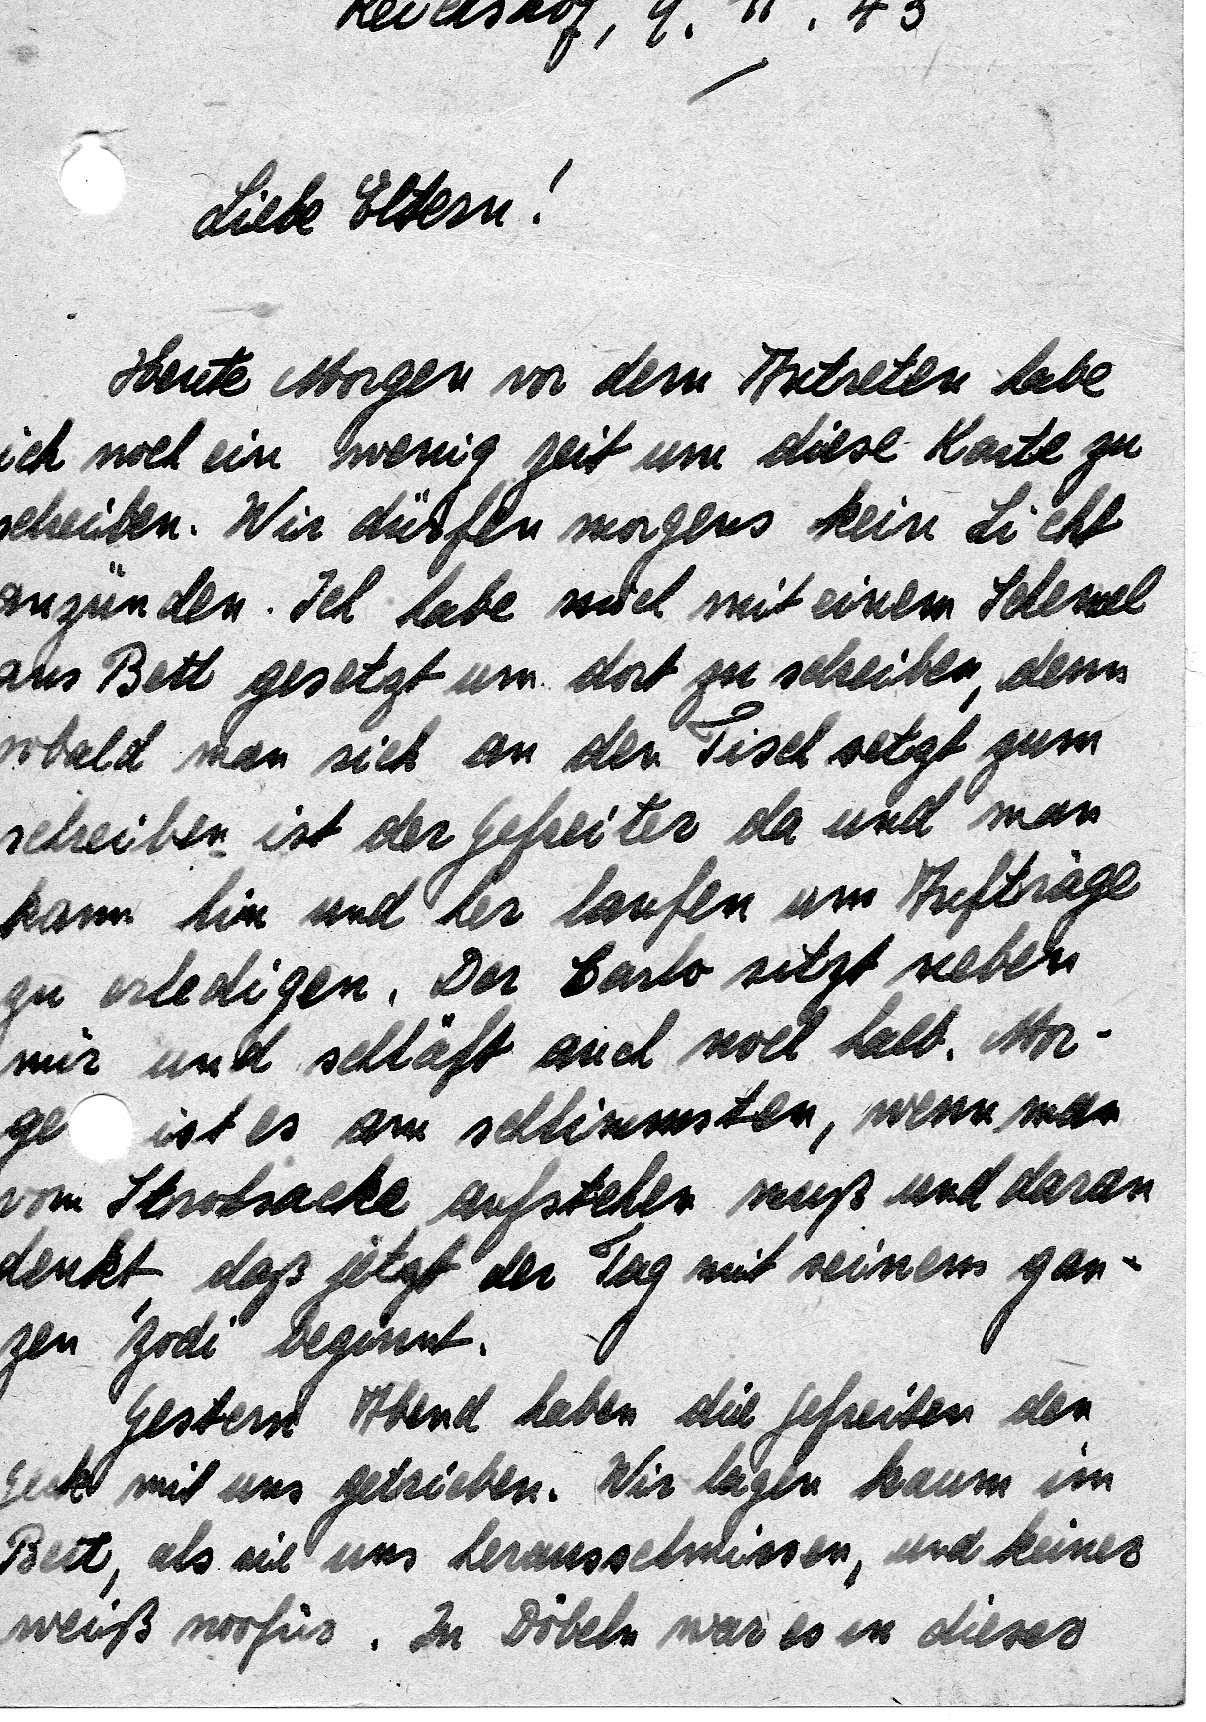 Reichshof, 9. 11. 43
Liebe Eltern!
Heute Morgen vor dem Antreten habe
ich noch ein wenig zeit um diese Karte zu
schreiben. Wir dürfen morgens kein Licht
anzünden. Ich habe mich mit einem Schemel
ans Bett gesetzt um dort zu schreiben, denn
sobald man sich an den Tisch setzt zum
schreiben ist der Gefreiter da und man
kann hin und her laufen um Aufträge
zu erledigen. Der Carlo sitzt neben
mir und schläft auch noch halb. Mor-
ge ist es am schlimmsten, wenn man
vom Strohsacke aufstehen muß und daran
denkt, daß jetzt der Tag mit seinem gan-
zen "Zodi" beginnt.
Gestern Abend haben die Gefreiten den
Geck mit uns getrieben. Wir lagen kaum im
Bett, als sie uns herausschmissen, und keiner
weiß woofür. In Döbeln war es in dieser